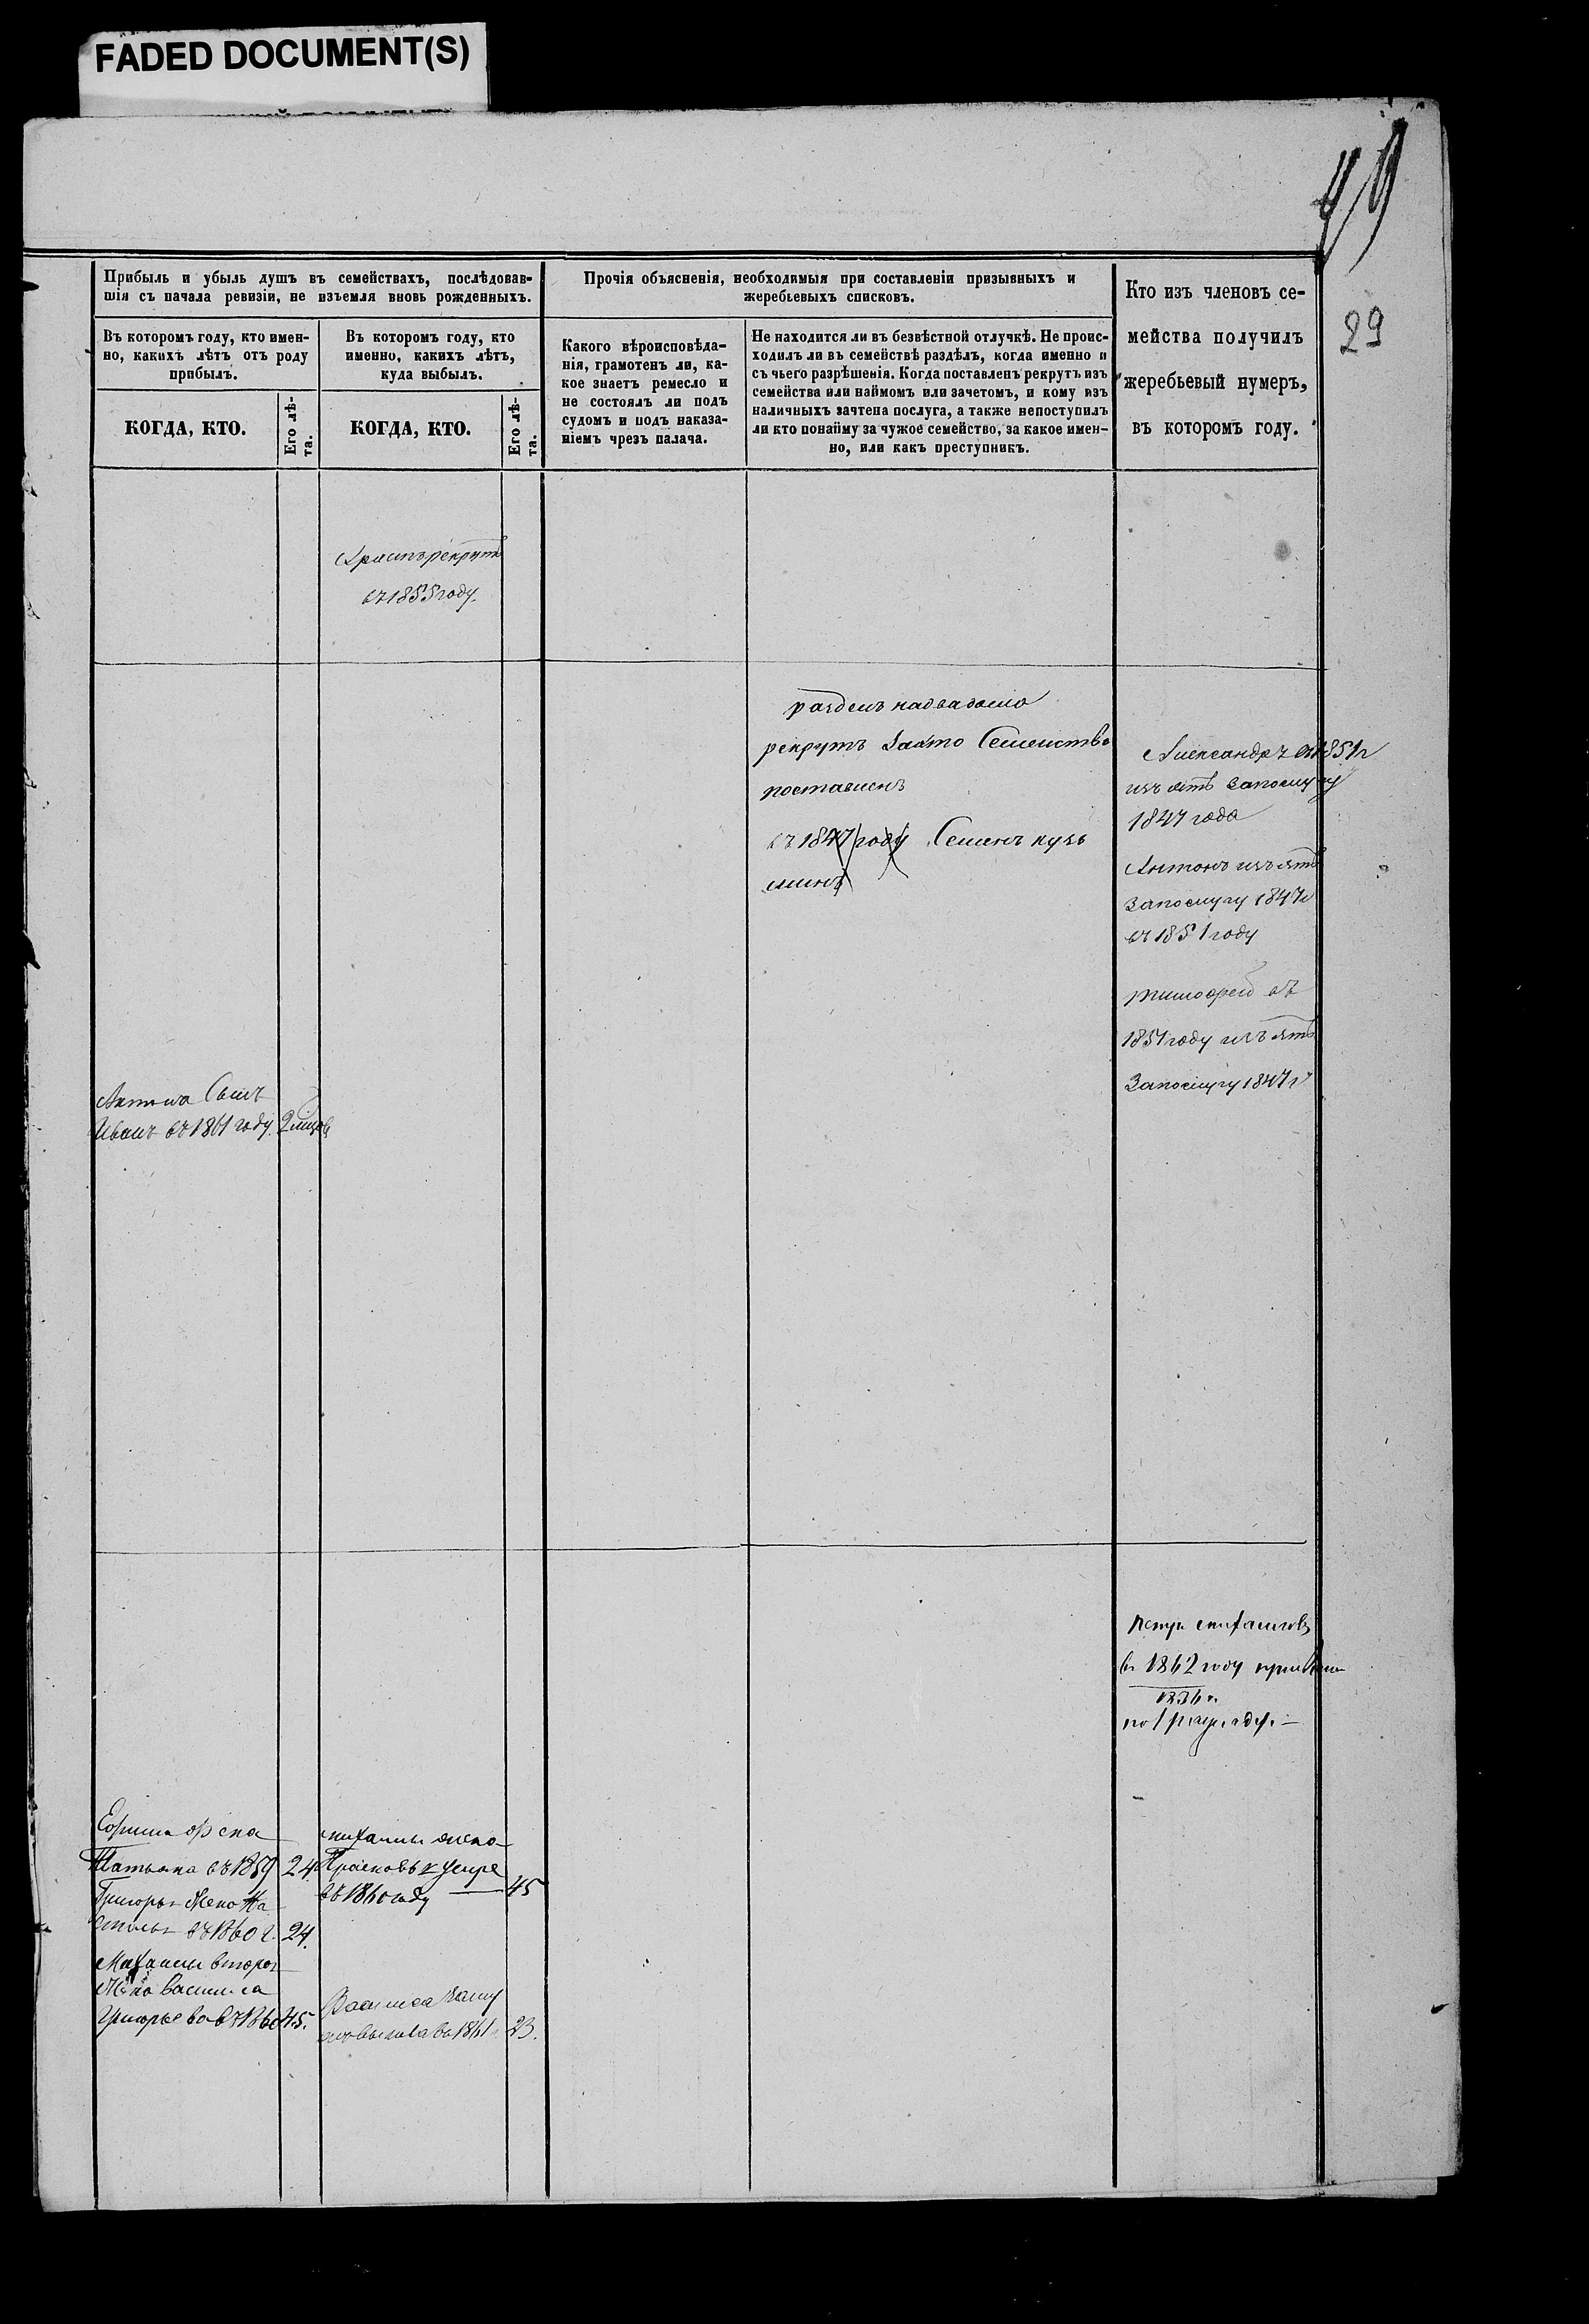 FADED DOCUMENT(S)
49
29
Прибыль и убыль душъ въ семействахъ, послѣдовав-
шія съ начала ревизіи, не изъемля вновь рожденныхъ.
Въ которомъ году, кто имен-
но, какихъ лѣтъ отъ роду
прибылъ.
Въ которомъ году, кто
именно, какихъ лѣтъ,
куда выбылъ.
КОГДА, КТО.
Его лѣ-
та.
КОГДА, КТО.
Его лѣ-
та.
Прочія объясненія, необходимыя при составленіи призывныхъ и
жеребьевыхъ списковъ.
Какого вѣроисповѣда-
нія, грамотенъ ли, ка-
кое знаетъ ремесло и
не состоялъ ли подъ
судомъ и подъ наказа-
ніемъ чрезъ палача.
Не находится ли въ безвѣстной отлучкѣ. Не проис-
ходилъ ли въ семействѣ раздѣлъ, когда именно и
съ чьего разрѣшенія. Когда поставленъ рекрутъ изъ
семейства или наймомъ или зачетомъ, и кому изъ
наличныхъ зачтена послуга, а также непоступилъ
ли кто понайму за чужое семейство, за какое имен-
но, или какъ преступникъ.
Кто изъ членовъ се-
мейства получилъ
жеребьевый нумеръ,
въ которомъ году.
рекрутъ
въ 1855 году.
разделъ
рекрутъ Семейство
поставленъ
въ 1847 году Семенъ кузь
минъ
Александръ въ 1851 г
изъятъ запослугу
1847 года
Антонъ изъятъ
запослугу 1847 г
въ 1851 году
тимофей въ
1851 году изъятъ
Запослугу 1847 г
Антона Сынъ
Иванъ въ 1861 году
петръ
въ 1862 году
1836 г.
по 1
Ефима жена
Татьяна въ 1859 24.
Григорья Жена На
талья въ 1860 г. 24.
второя
Жена василиса
Григорьева въ 1860 45.
жена
Прасковья умре
въ 1860 году — 45
Василиса Заму
въ 1861 23.